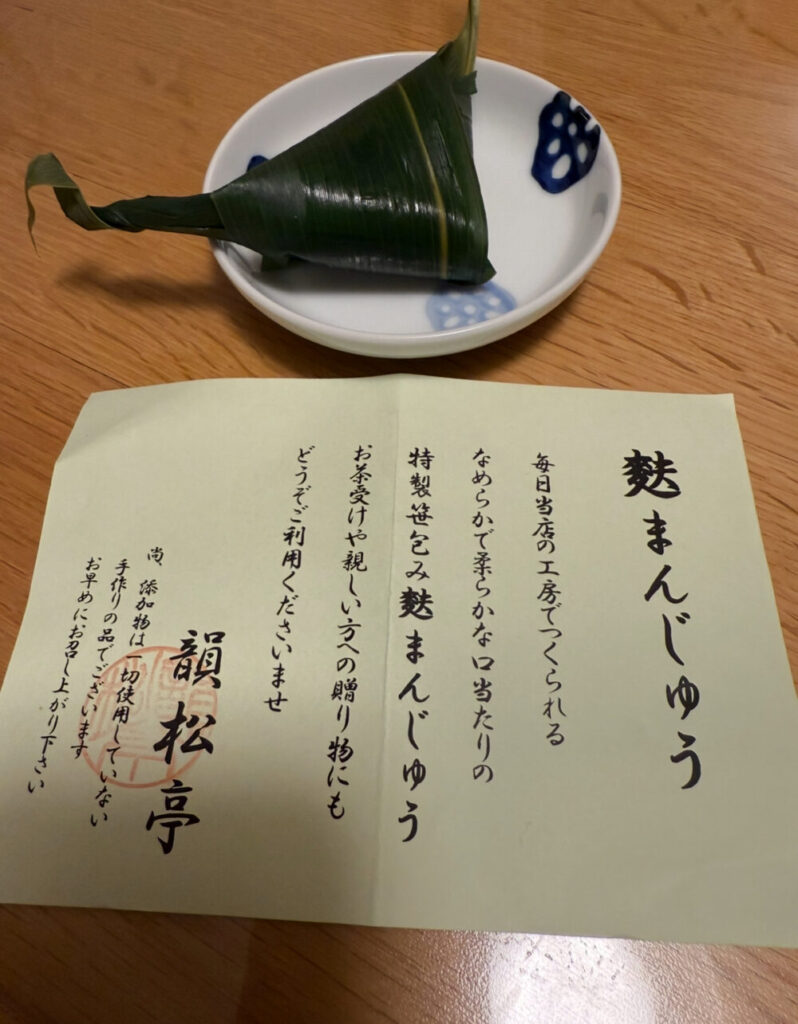 麩まんじゅう
毎日当店の工房でつくられる
なめらかで柔らかな口当たりの
特製笹包み麩まんじゅう
お茶受けや親しい方への贈り物にも
どうぞご利用くださいませ
韻松亭
尚、添加物は一切使用していない
手作りの品でございます
お早めにお召し上がり下さい